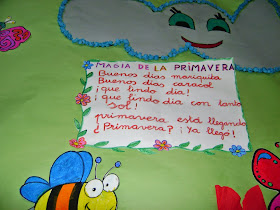 MAGIA DE LA PRIMAVERA
Buenos dias mariquita
Buenos dias caracol
¡que lindo dia!
¡que lindo dia con tanto
Sol!
primavera está llegando
¿Primavera? ¡Ya llegó!